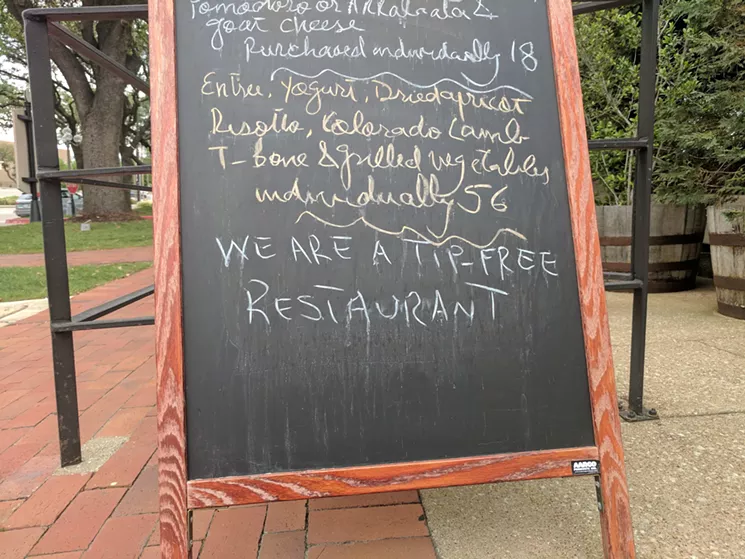 Pomodoro or Arrabiata &
goat cheese
Purchased individually 18
Entree, Yogurt, Dried apricot
Risotto, Kolorado Lamb
T-bone & grilled vegetables
individually 56
WE ARE A TIP-FREE
RESTAURANT
AARCO